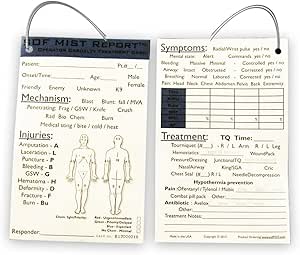 OF MIST REPORT™
OPERATOR CASUALTY TREATMENT CARD
Patient: PLT# /
Onset/Time: Age: Male
Female
Friendly Enemy Unknown K9
Mechanism: Blast Blunt: fall / MVA
Penetrating: Frag / GSW / Knife Crush
Rad Bio Chem Burn
Medical sting / bite / cold / heat
Injuries:
Amputation - A
Laceration - L
Puncture - P
Bleeding - B
GSW - G
Hematoma - H
Deformity - D
Fracture - F
Burn - Bu
Responder:
Symptoms: Radial/Wrist pulse yes / no
Mental state: Alert Commands yes / no
Bleeding Minimal Controlled yes / no
Airway: Intact Obstructed - Corrected yes / no
Breathing Normal Labored - Corrected yes / no
Treatment: TQ Time:
Tourniquet (#) - R / L Arm R / L Leg
Hemostatics WoundPack
PressureDressing JunctionalTQ
NasalAirway King/SGA Cric
Chest Seal NeedleDecompression
Hypothermia prevention
Pain - Ofentanyl / Tylenol / Mobic
Combat pill pack Other:
Antibiotic - Avelox Other:
Treatment Notes:
Made in the USA